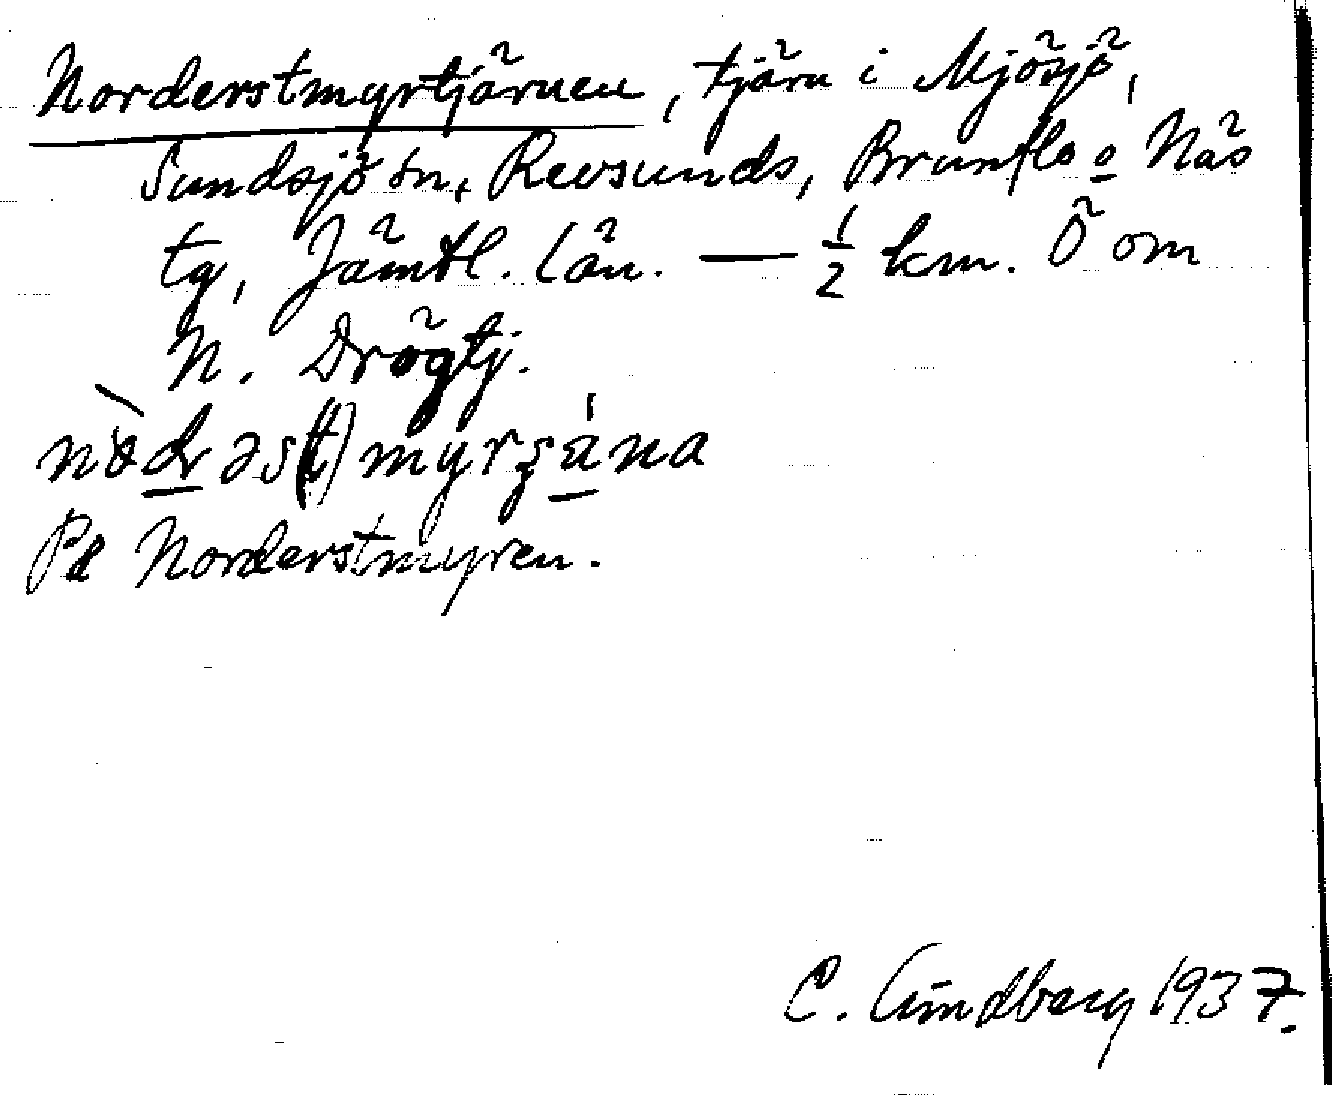 Norderstmyrtjärnen, tjärn i Mjösjö,
Sundsjö sn, Revsunds, Brunflo o Näs
tg, Jämtl. län. — ½ km. Ö om
N. Drögtj.
På Norderstmyren.
C. Lindberg 1937.